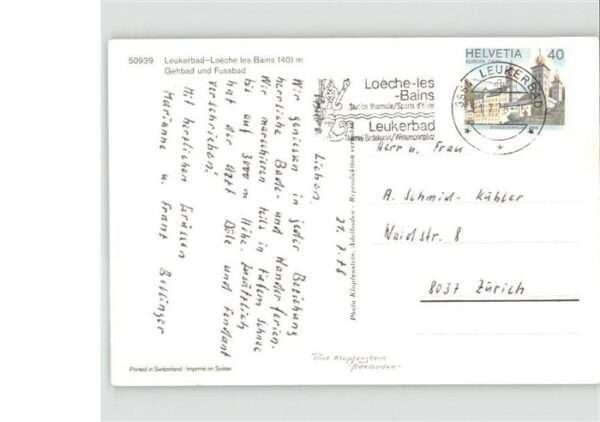 50939 Leukerbad–Loèche les Bains 1401 m
Gehbad und Fussbad
HELVETIA 40
3954 LEUKERBAD
Loèche-les
-Bains
Station thermale/Sports d'hiver
Leukerbad
27.7.78
Lieben
Wir geniessen in jeder Beziehung
herrliche Bade- und Wanderferien.
Wir marschieren teils in tiefem Schnee
bis auf 3000 m Höhe. Zusätzlich
hat der Arzt Dôle und Fendant
verschrieben!
Mit herzlichen Grüssen
Marianne u. Franz Bollinger
Photo Klopfenstein, Adelboden - Reproduktion verboten
Herr u. Frau
A. Schmid-Kübler
Waidstr. 8
8037 Zürich
Klopfenstein
Adelboden
Printed in Switzerland - Imprimé en Suisse